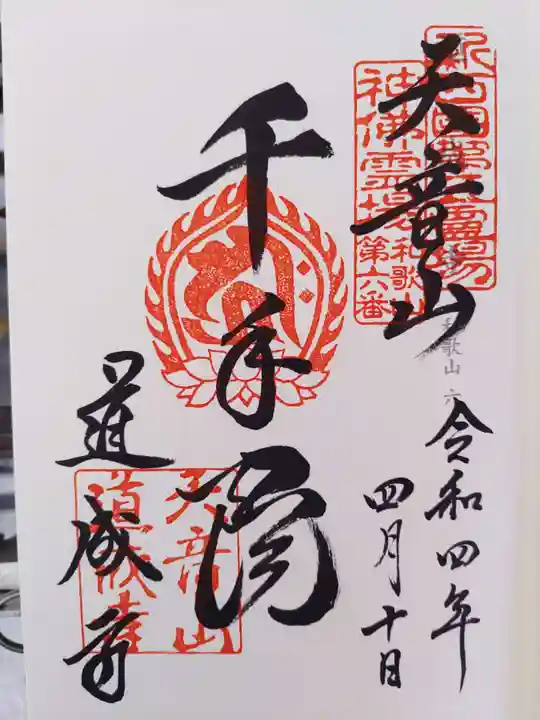 天音山
令和四年
四月十日
千手閣
道成寺
新西国第五霊場
神佛霊場
和歌山
第六番
和歌山 六
天音山
道成寺